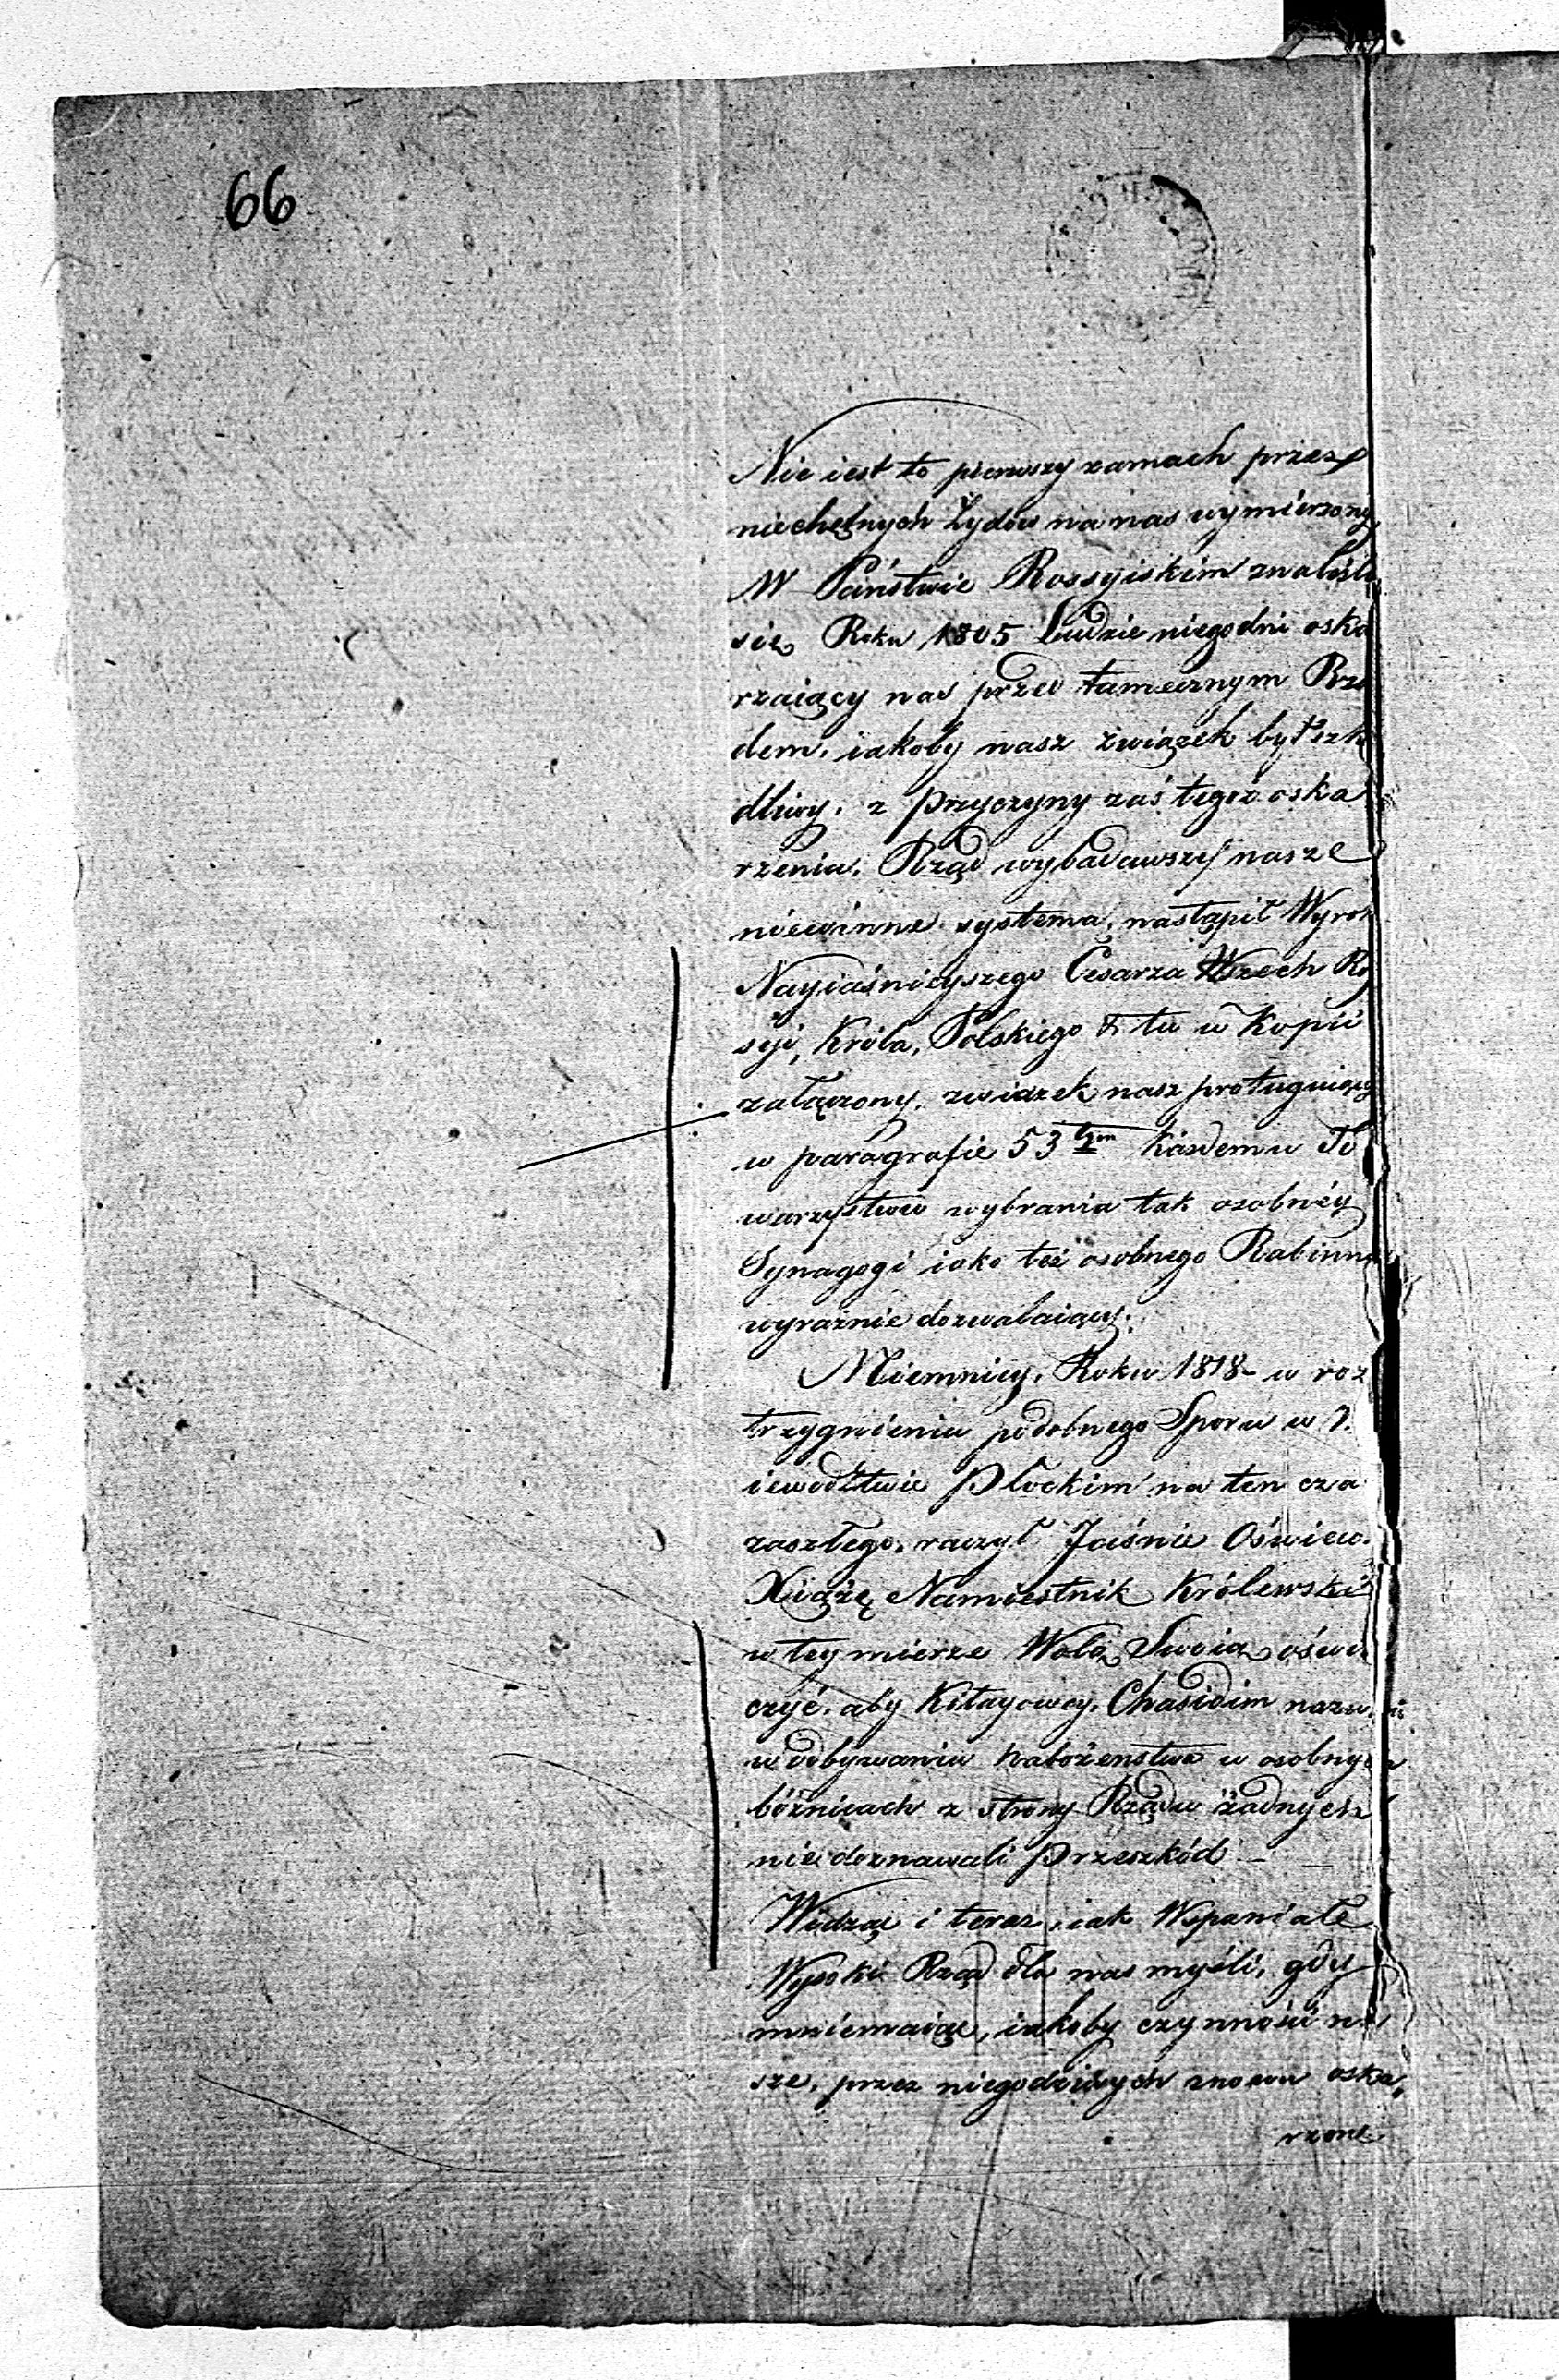 66
Nie iest to pierwszy zamach przez
niechętnych Żydów na nas wymierzony
W Państwie Rossyiskim znaleśli
się Roku 1805 Ludzie niegodni oska
rzaiący nas przed tamecznym Rzą
dem, iakoby nasz związek był szko
dliwy, z przyczyny zaś tegoż oska
rzenia, Rząd wybadawszy nasze
niewinne systema, nastąpił Wyrok
Nayiaśnieyszego Cesarza Wszech Ro
syi, Króla Polskiego & tu w Kopii
załączony, związek nasz
w paragrafie 53 tym każdemu To
warzystwu wybrania tak osobnéy
Synagogi iako też osobnego Rabinna
wyraźnie dozwalaiący.
Niemniey, Roku 1818 w roz
trzygnieniu podobnego Sporu w
iewództwie Płockim na ten cza
zaszłego, raczył Jaśnie Oświec.
Xiąże Namiestnik Królewski
w tey mierze Wolą Swoią oświa
czyć, aby Kitayowcy, Chasidim nazwani
w odbywaniu nabożenstwa w osobnych
bóżnicach z strony Rządu żadnych
nie doznawali przeszkód
Widząc i teraz, iak Wspaniale
Wysoki Rząd dla nas myśli, gdy
mniemaiąc, iakoby czynność na
sze, przez niegodziwych znowu oska
rzone